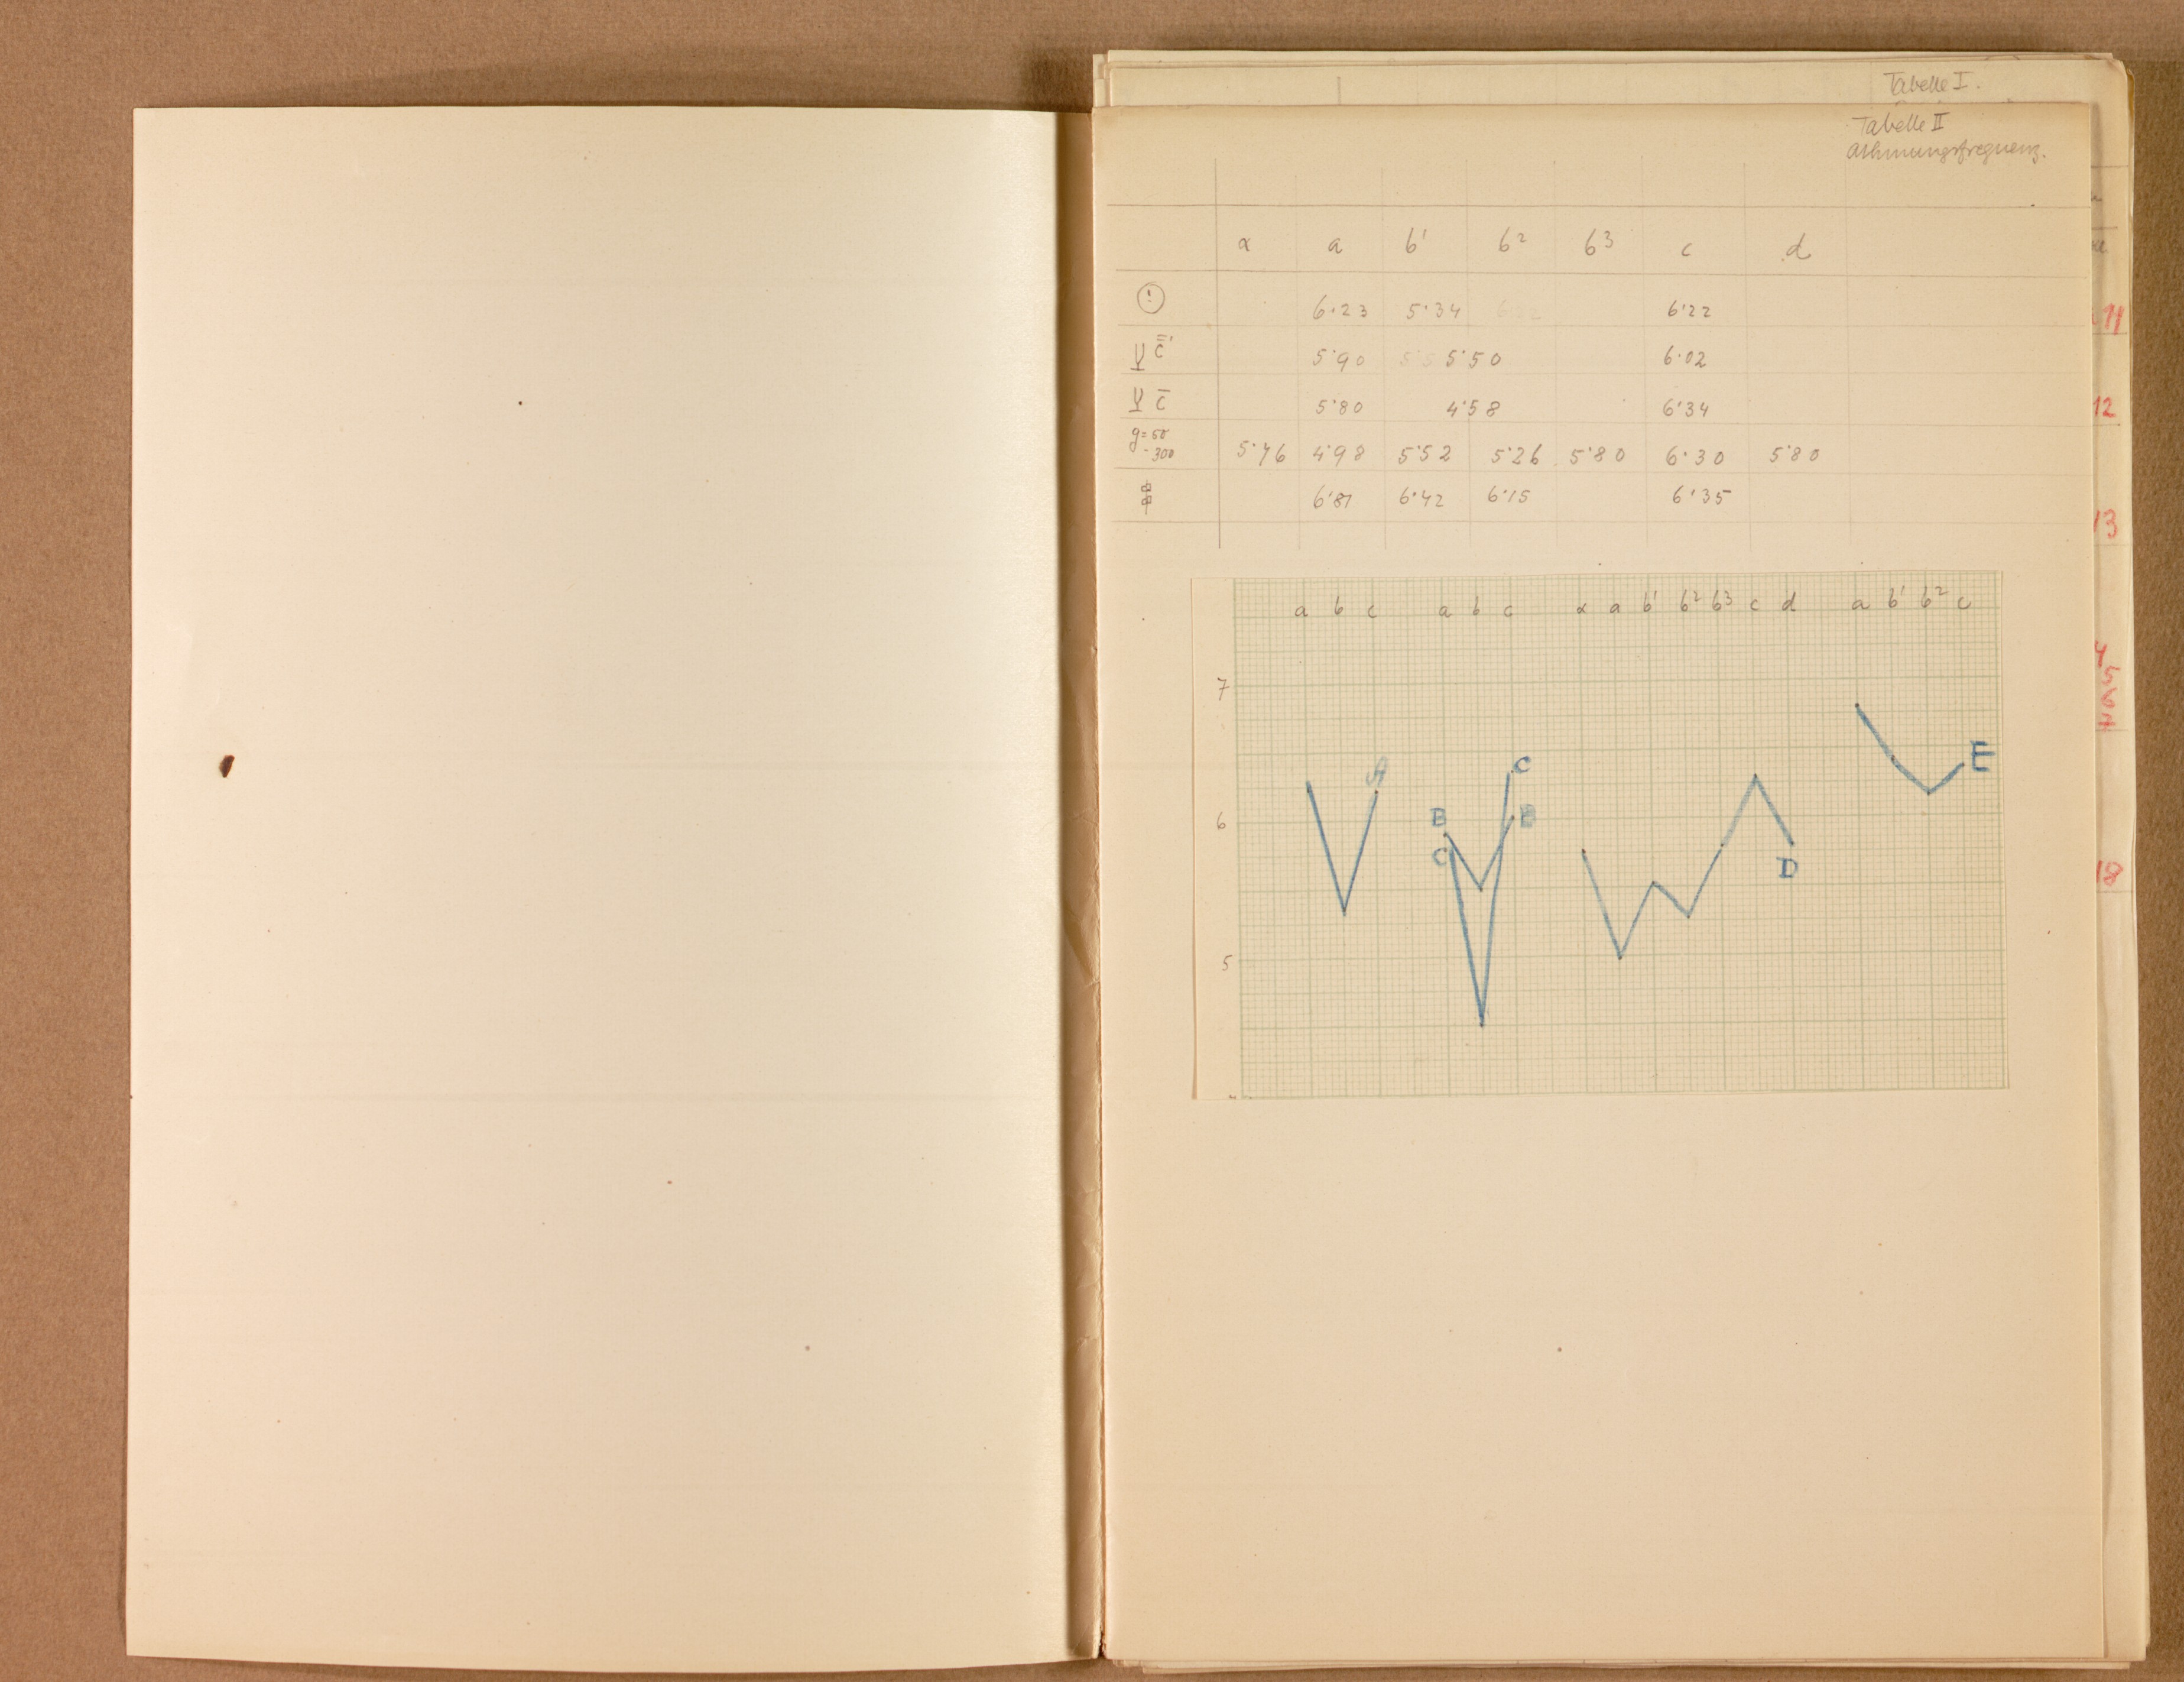 Tabelle I.
Tabelle II
Athmungsfrequenz.
α a b¹ b² b³ c d
! 6·23 5·34 6·22
5·90 5·50 6·02
c̄ 5·80 4·58 6·34
g=50
-300 5·76 4·98 5·52 5·26 5·80 6·30 5·80
6·81 6·42 6·15 6·35
a b c a b c α a b¹ b² b³ c d a b¹ b² c
7
A C E
6 B B
C D
5
11
12
13
4
5
6
7
18